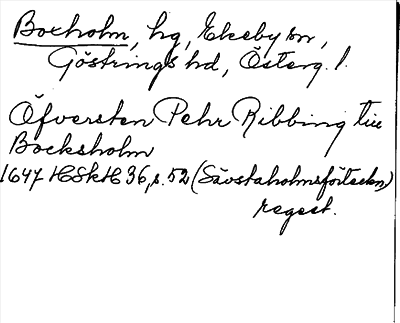 Boxholm, hg, Ekeby sn,
Göstrings hd, Österg. l.
Öfversten Pehr Ribbing till
Bocksholm
1647 HSkH 36, s. 52 (Säfstaholmsförteckn)
regest.